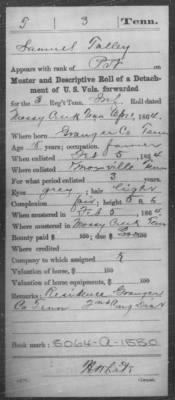 5 | 3 | Tenn.
Samuel Talley
Appears with rank of Pvt on
Muster and Descriptive Roll of a Detach-
ment of U. S. Vols. forwarded
for the 3 Reg't Tenn. Inf. Roll dated
Mossy Creek Tenn 1864.
Where born Granger Co Tenn
Age y'rs; occupation, farmer
When enlisted Feb 5, 1864
Where enlisted Knoxville Tenn
For what period enlisted 3 years.
Eyes grey; hair light
Complexion fair; height 5 ft. 6 in.
When mustered in Feb 5, 1864
Where mustered in Mossy Creek Tenn
Bounty paid $ 100; due $ 100
Where credited
Company to which assigned K
Valuation of horse, $ 100
Valuation of horse equipments, $ 100
Remarks: Residence Granger
Co Tenn 2nd Cong Dist
Book mark: 5064-A-1880